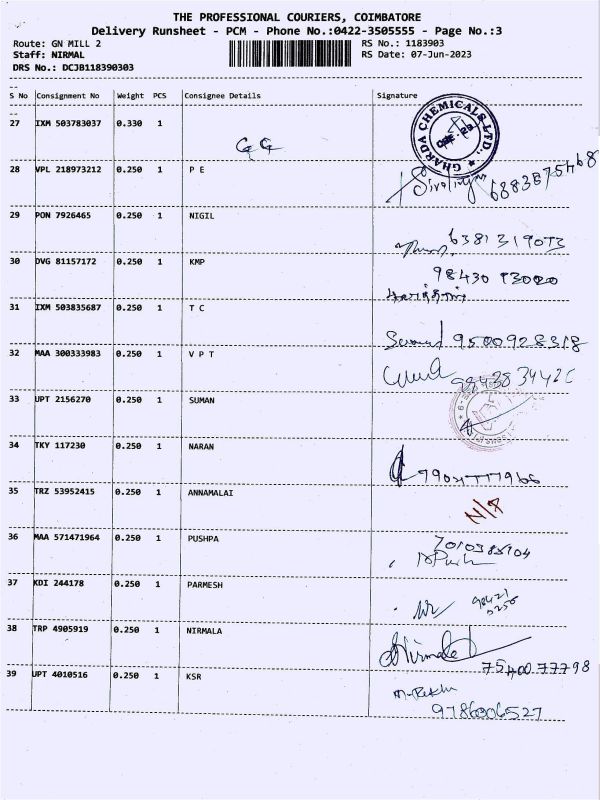 THE PROFESSIONAL COURIERS, COIMBATORE
Delivery Runsheet - PCM - Phone No.:0422-3505555 - Page No.:3
Route: GN MILL 2 RS No.: 1183903
Staff: NIRMAL RS Date: 07-Jun-2023
DRS No.: DCJB118390303
--
S No Consignment No Weight PCS Consignee Details Signature
--
27 IXM 503783037 0.330 1 GHARDA CHEMICALS LTD.
28 VPL 218973212 0.250 1 P E
29 PON 7926465 0.250 1 NIGIL
30 DVG 81157172 0.250 1 KMP
31 IXM 503835687 0.250 1 T C
9500928318
32 MAA 300333983 0.250 1 V P T
33 UPT 2156270 0.250 1 SUMAN
34 TKY 117230 0.250 1 NARAN
35 TRZ 53952415 0.250 1 ANNAMALAI
N/A
36 MAA 571471964 0.250 1 PUSHPA
37 KDI 244178 0.250 1 PARMESH
38 TRP 4905919 0.250 1 NIRMALA
Nirmala
7540077798
39 UPT 4010516 0.250 1 KSR
9786006527